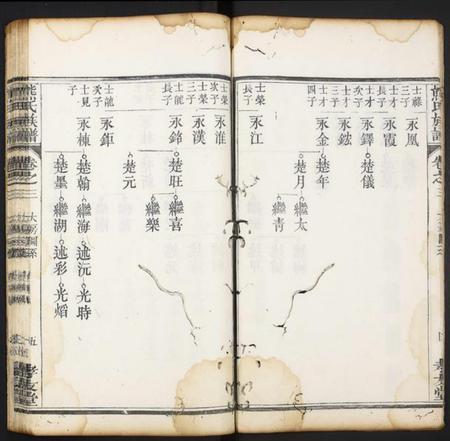 熊氏族譜
士祿三子
永鳳
士才長子
永霞
士才次子
永鐸
楚儀
士才三子
永鉉
士才四子
永金
楚年
繼太
楚月
繼青
士榮長子
永江
士榮次子
永淮
士榮三子
永漢
士龍長子
永錦
楚旺
繼喜
繼樂
楚元
士龍次子
永鉅
士見子
永棟
楚翰
繼海
述沅
光時
楚墨
繼湖
述彩
光焰
熊氏族譜
五
孝友堂